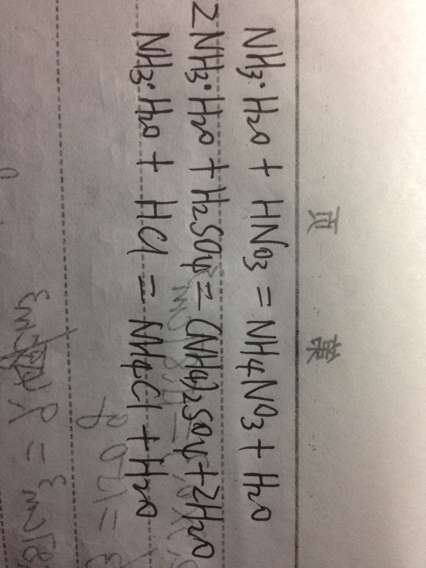 第 页
NH3·H2O + HNO3 = NH4NO3 + H2O
2NH3·H2O + H2SO4 = (NH4)2SO4 + 2H2O
NH3·H2O + HCl = NH4Cl + H2O